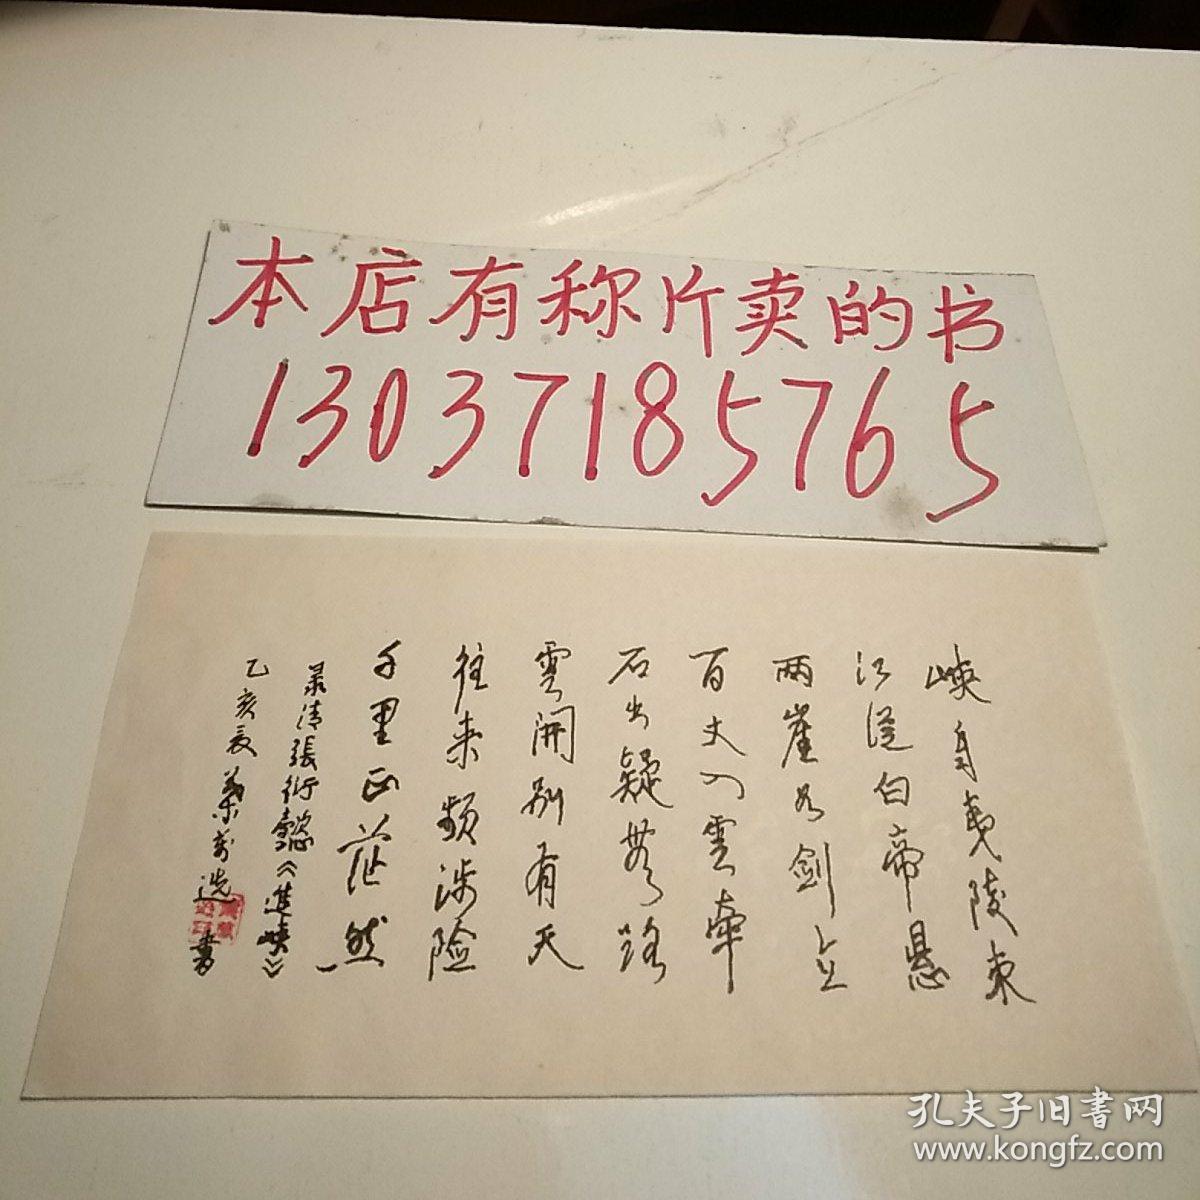 本店有称斤卖的书
13037185765
峡自夷陵束
江從白帝懸
兩崖如剑立
百丈入雲牽
石出疑無路
雲開别有天
往来频涉险
千里正茫然
录清張衍懿《進峡》
乙亥夏葉萬選書
孔夫子旧書网
www.kongfz.com